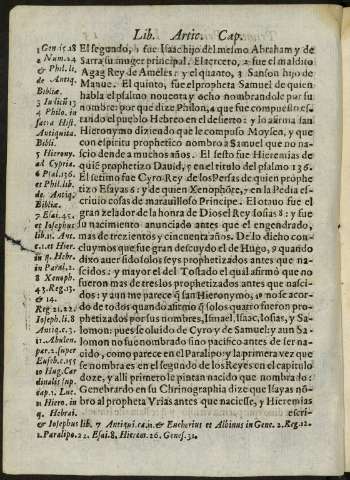 Lib. Artic. Cap.
El segundo, 1 fue Isaac hijo del mesmo Abraham y de
Sarra su muger principal. El tercero, 2 fue el maldito
Agag Rey de Amélec: y el quarto, 3 Sanson hijo de
Manue. El quinto, fue el propheta Samuel de quien
habla el psalmo nouenta y ocho nombrandole por su
nombre: por que dize Philon, 4 que fue compuesto es-
tando el pueblo Hebreo en el desierto: y lo afirma san
Hieronymo diziendo que le compuso Moysen, y que
con espiritu prophetico nombro a Samuel que no na-
scio dende a muchos años. El sesto fue Hieremias de
quié prophetizo Dauid, y en el titulo del psalmo 136.
El setimo fue Cyro Rey de los Persas de quien prophe
tizo Esayas 6: y de quien Xenophôte, 7 en la Pedia es-
criuio cosas de marauilloso Principe. El otauo fue el
gran zelador de la honra de Dios el Rey Iosias 8: y fue
su nacimiento anunciado antes que el engendrado,
mas de trezientos y cincuenta años. De lo dicho con-
cluymos que fue gran descuydo el de Hugo, 9 quando
dixo auer sido solos seys prophetizados antes que na-
scidos: y mayor el del Tostado el qual afirmó que no
fueron mas de tres los prophetizados antes que nasci-
dos: y aun me parece q̃ san Hieronymo, 10 no se acor-
do de todos quando afirmó q̃ solos quatro fueron pro-
phetizados por sus nombres, Ismael, Isaac, Iosias, y Sa-
lomon: pues se oluido de Cyro y de Samuel: y aun Sa-
lomon no fue nombrado sino pacifico antes de ser na-
cido, como parece en el Paralipo: y la primera vez que
se nombra es en el segundo de los Reyes en el capitulo
doze, y alli primero le pintan nacido que nombrado:
Genebrardo en su Chrinographia dize que Isayas nõ-
bro al propheta Vrias antes que naciesse, y Hieremias
escri-
1 Genesis 18
2 Num. 24
& Phil. li.
de Antiq.
Bibliæ.
3 Iudicũ 13
4 Philo. in
sacra Hist.
Antiquita.
Bibli.
5 Hierony.
ad Cypria.
6 Psal. 136.
et Phil. lib.
de Antiq.
Bibliæ.
7 Esai. 45.
et Iosephus
lib. 11. Ant.
c. 1. et Hier.
in q. Hebr.
in Parali. 2.
8 Xenoph.
4 3. Reg. 13.
& 14.
Reg. 21. 22.
Ioseph. li. 8
Antiq. c. 3.
per. 2. super
Euseb. c. 155
10 Hug. Car
dinalis sup.
cap. 1. Luc.
11 Hiero. in
q. Hebrai.
& Iosephus lib. 7 Antiqui. ca. 11. & Eucherius et Albinus in Gene. 2. Reg. 12.
1. Paralipo. 22. Esai. 8. Hierem. 26. Genes. 32.